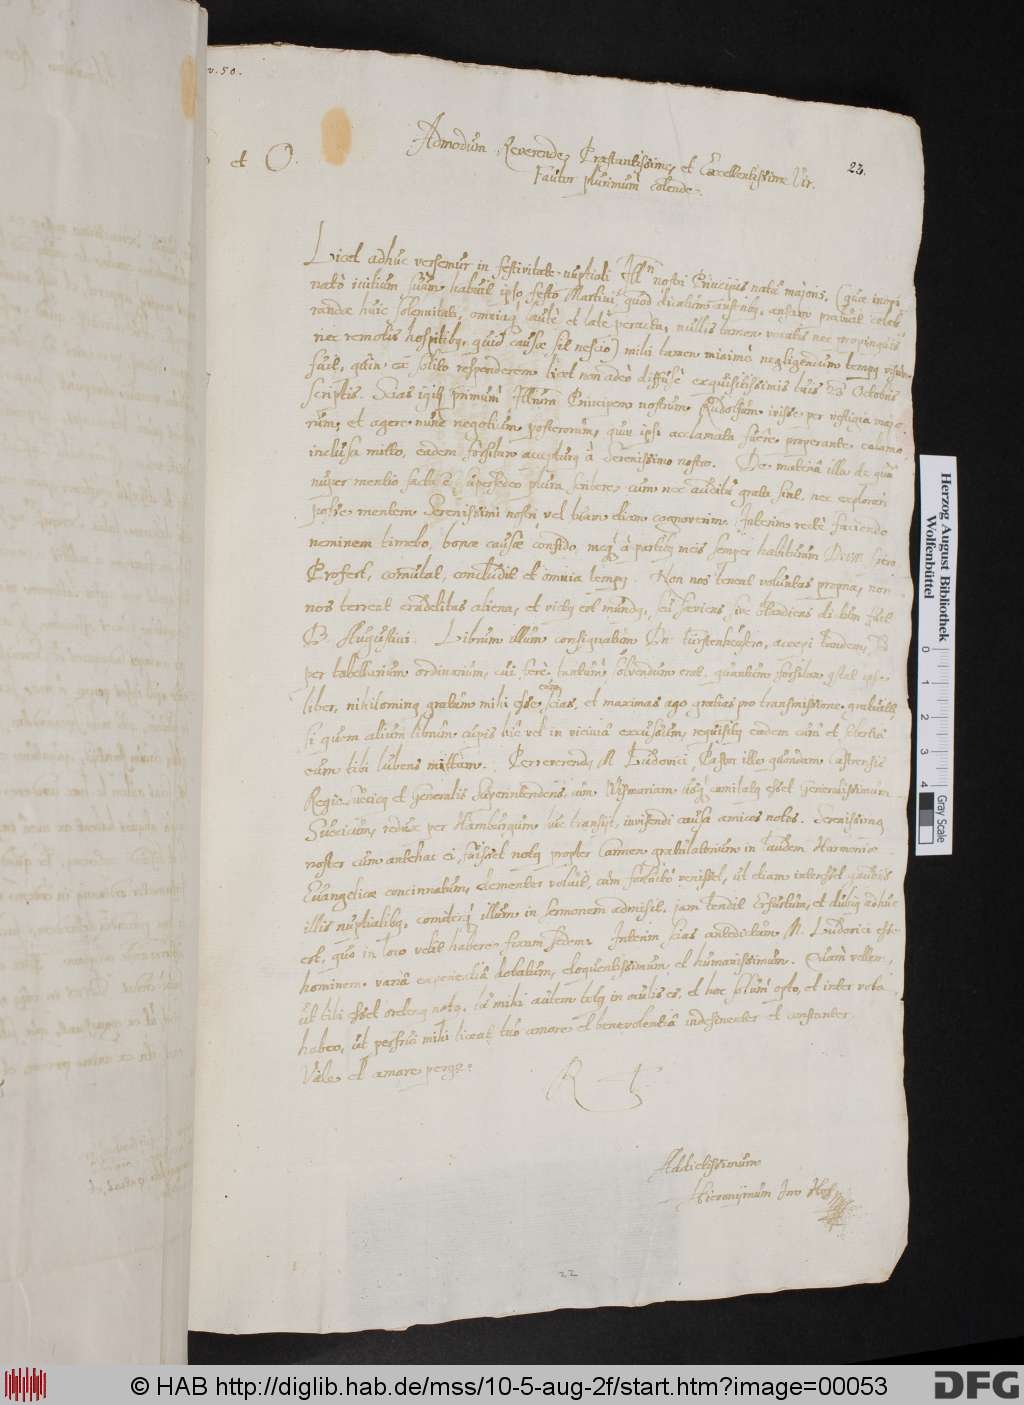 v. 50.
et O.
23.
Admodum Reverende, Præstantissime, et Excellentissime Vir.
Fautor plurimum colende.
Licet adhuc versemur in festivitate nuptiali Illmi nostri Principis natu majoris, (quæ inopi
nato initium suum habuit ipso festo Martini, quod dicatum
randæ huic solennitati, omniaq lautè et latè peracta, nullis tamen vocatis nec propinquis
nec remotis hospitibq, quid causæ sit nescio) mihi tamen minimè negligendum tempq
fuit, quin ex solito responderem licet non adeò diffusè exquisitissimis tuis Octobris
scriptis. Scias igitur primum Illum Principem nostrum Rudolphum ivisse per vestigia majo
rum, et agere nunc negotium posterorum, quæ ipsi acclamata fuêre properante calamo
inclusa mitto, eadem forsitan accepturq à Serenissimo nostro. De materia illa de quâ
nuper mentio facta ē, supersedeo plura scribere, cum nec auditu grata sint, nec explorari
posse mentem Serenissimi nostri vel tuam etiam cognoverim. Interim rectè faciendo
neminem timebo, bonæ causæ confido, meq à partibq meis semper habiturum Deum spero.
Profert, comutat, concludit et omnia tempq. Non nos tenent voluntas propria, non
nos terreat crudelitas aliena, et victq est mundq, seu sæviens, sive blandiens dictum fuit
D. Augustini. Librum illum consignatum Dn. accepi tandem,
per tabellarium ordinarium, cui ferè tantum solvendum erat, quantum forsitan ipse
liber, nihilominq gratum mihi esse eum scias, et maximas ago gratias pro transmissione
si quem alium librum cupis hîc vel in viciniâ excusum, requisitq eadem curâ et
eum tibi lubens mittam. Perreverendq M. Ludovici, Pastor ille quondam Castrensis
Regis Suecicq et Generalis Superintendens, cum Wismariam usq comitatq esset Generalissimum
Suecicum, redux per Hamburgum huc transijt, invisendi causa amicos notos. Serenissimq
noster cum antehac ei fuisset notq propter Carmen gratulatorium in laudem Harmoniæ
Evangelicæ concinnatum, clementer voluit, cum fortuitò venisset, ut etiam interesset gaudiis
illis nuptialibq, comiterq illum in sermonem admisit, jam tendit Erfurtum, et dubiq adhuc
est, quo in loco velit habere fixam sedem. Interim scias antedictum M. Ludovici esse
hominem variâ experientiâ dotatum, eloquentissimum, et humanissimum. Quàm vellem,
ut tibi esset oretenq notq. tu mihi autem totq in oculis es, et hoc solum opto, et inter vota
habeo, ut perfrui mihi liceat tuo amore et benevolentiâ indesinenter et constanter.
Vale et amare perge.
R
Addictissimum
Hieronijmum Imhoff
22
Herzog August Bibliothek
Wolfenbüttel
0 1 2 3 4
Gray Scale
© HAB http://diglib.hab.de/mss/10-5-aug-2f/start.htm?image=00053
DFG